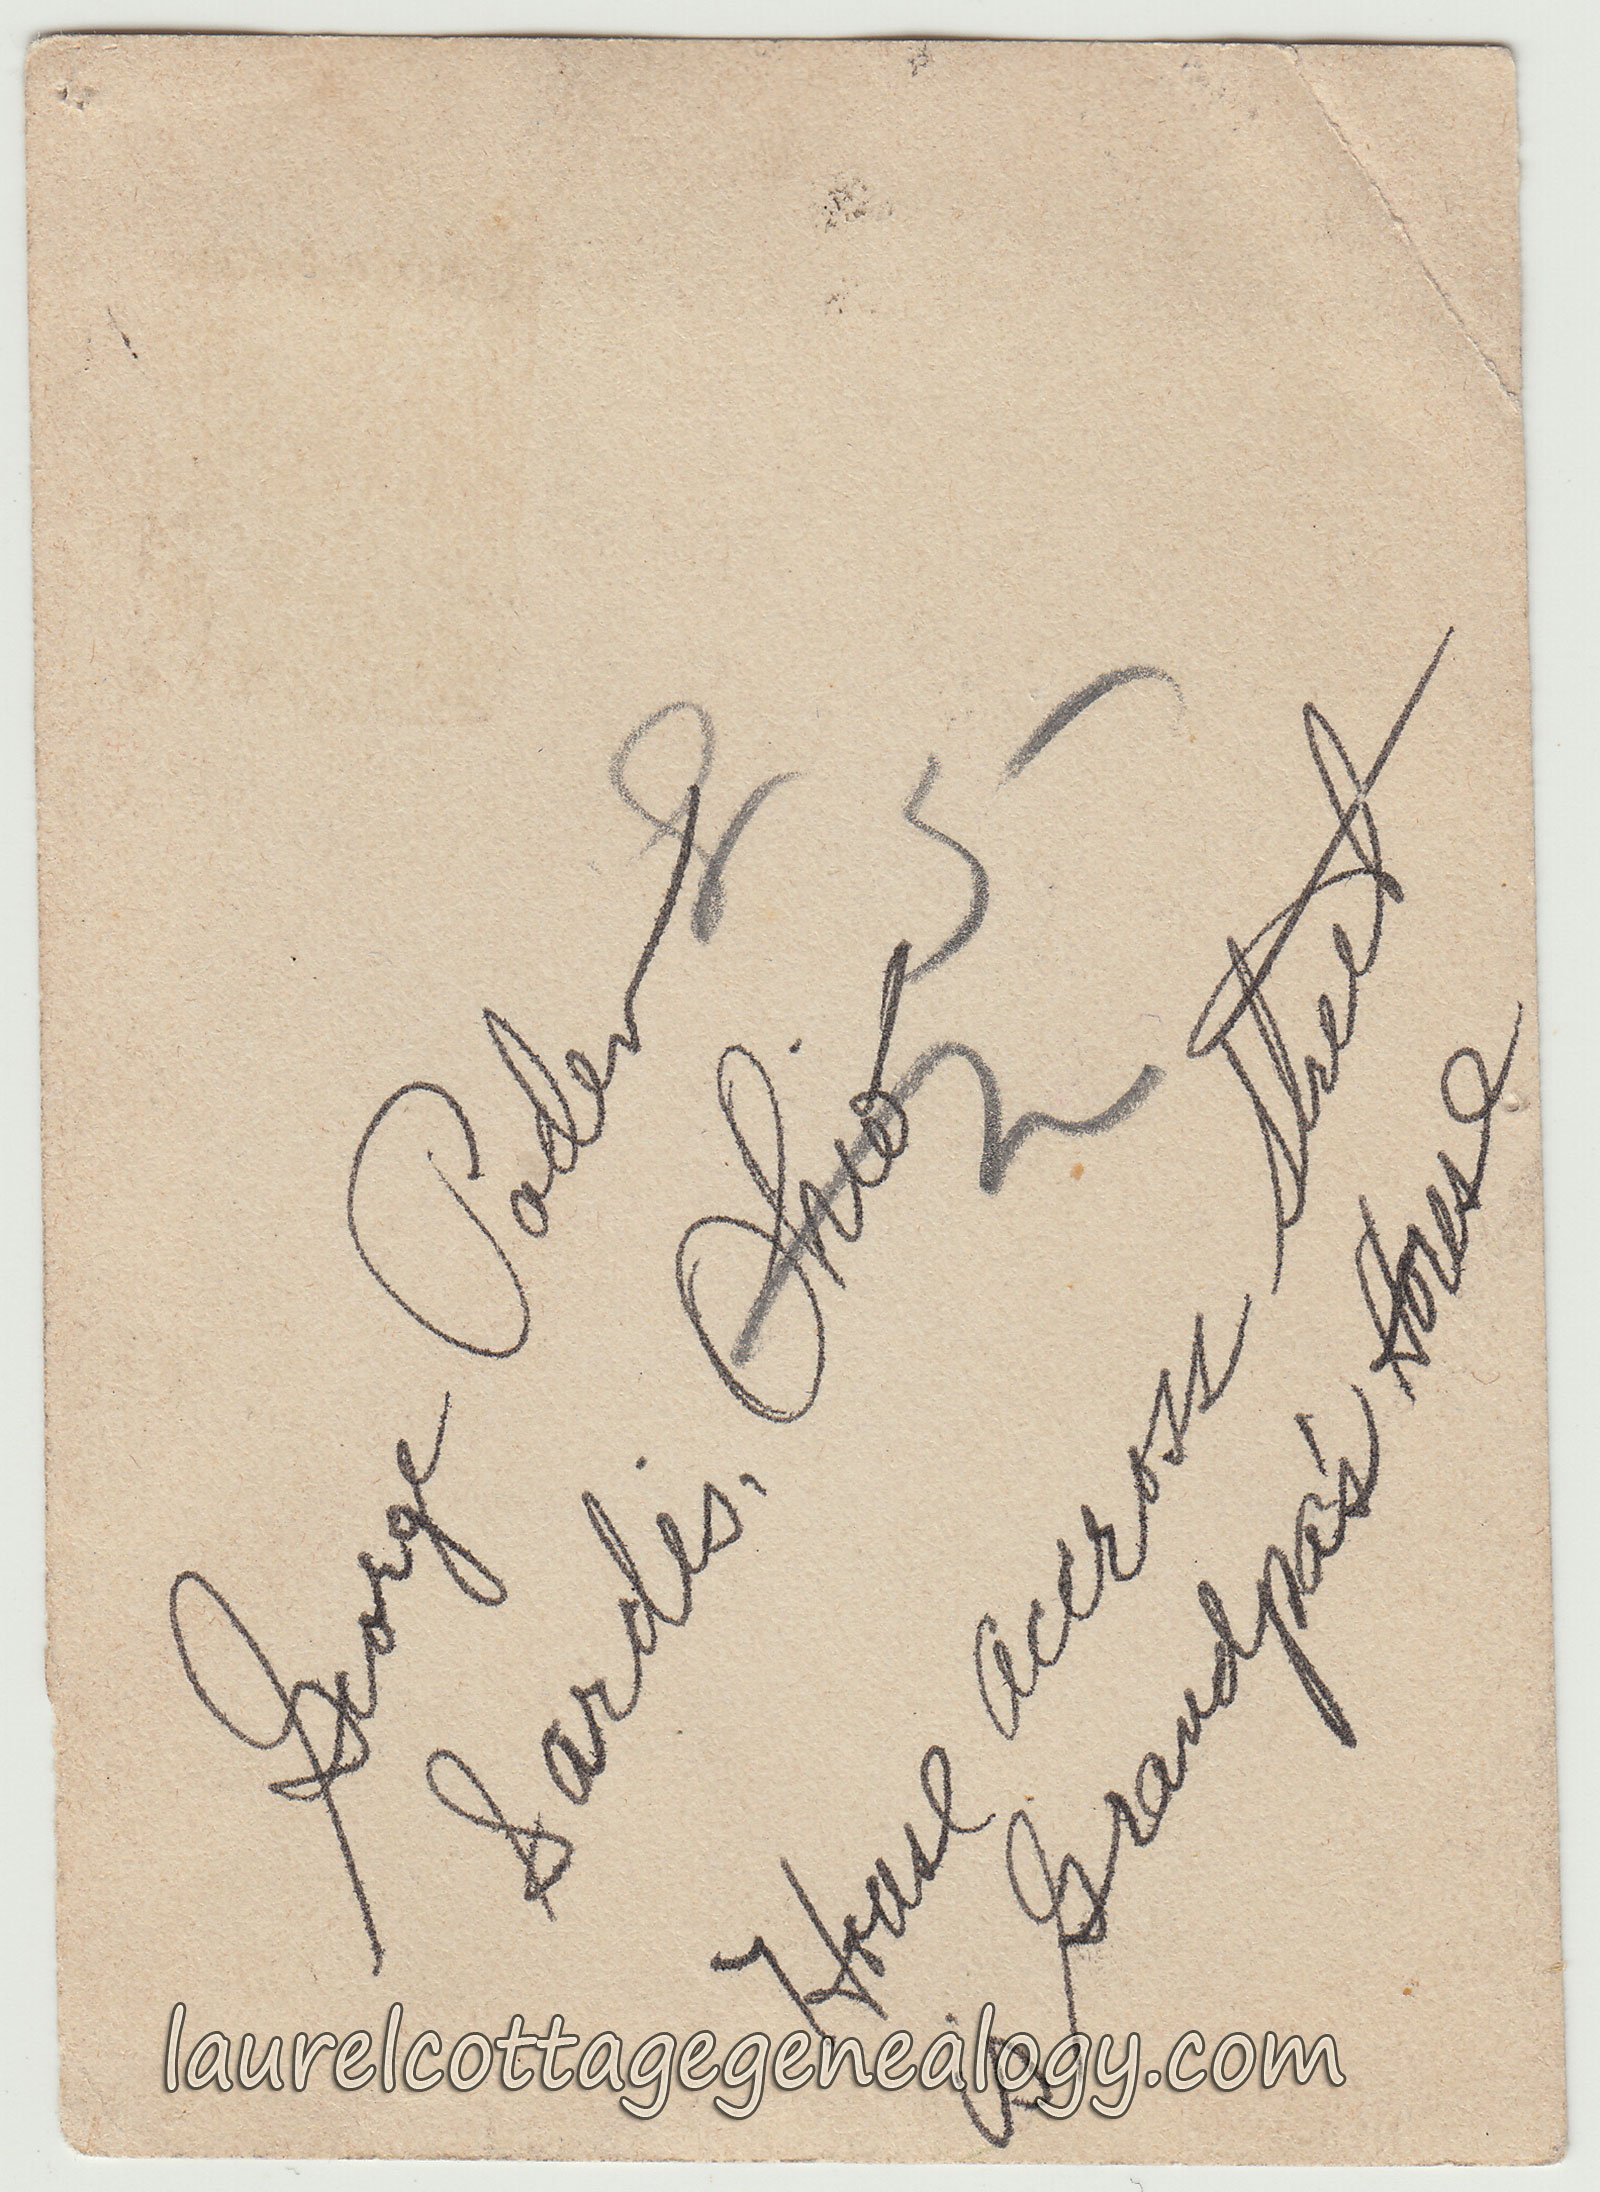 George Paden
Sardis, Ohio
House accross street
is Grandpa's House
laurelcottagegenealogy.com